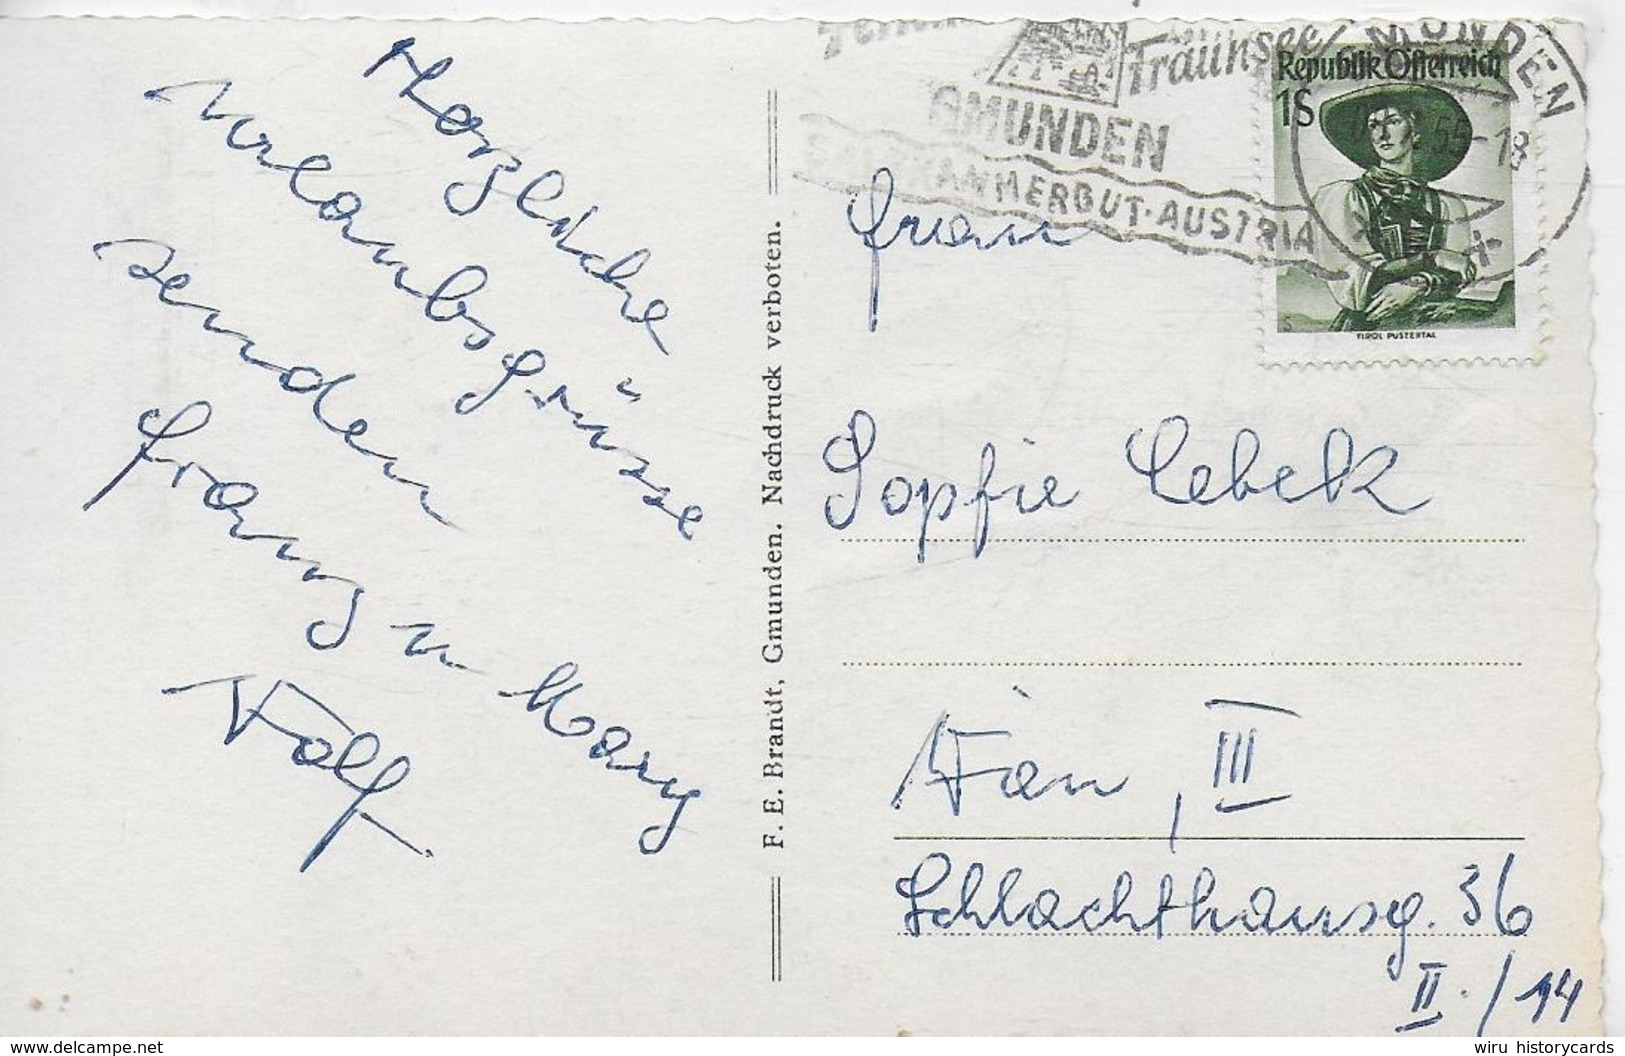 Herzliche
Urlaubsgrüsse
senden
Franz u Mary
Wolf.
F. E. Brandt, Gmunden. Nachdruck verboten.
Traunsee
GMUNDEN
SALZKAMMERGUT-AUSTRIA
GMUNDEN
55-18
Republik Österreich
1S
TIROL PUSTERTAL
Frau
Sopfie Cebek
Wien, III
Schlachthausg. 36
II./14
wiru historycards
www.delcampe.net